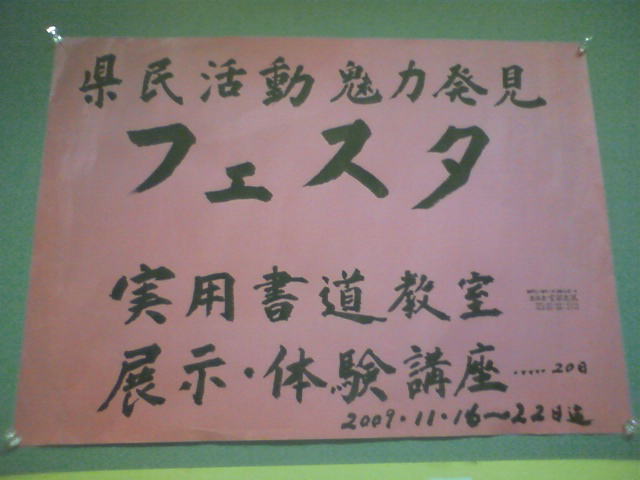 県民活動魅力発見
フェスタ
実用書道教室
展示・体験講座・・・・・20日
2009.11.16〜22日迄